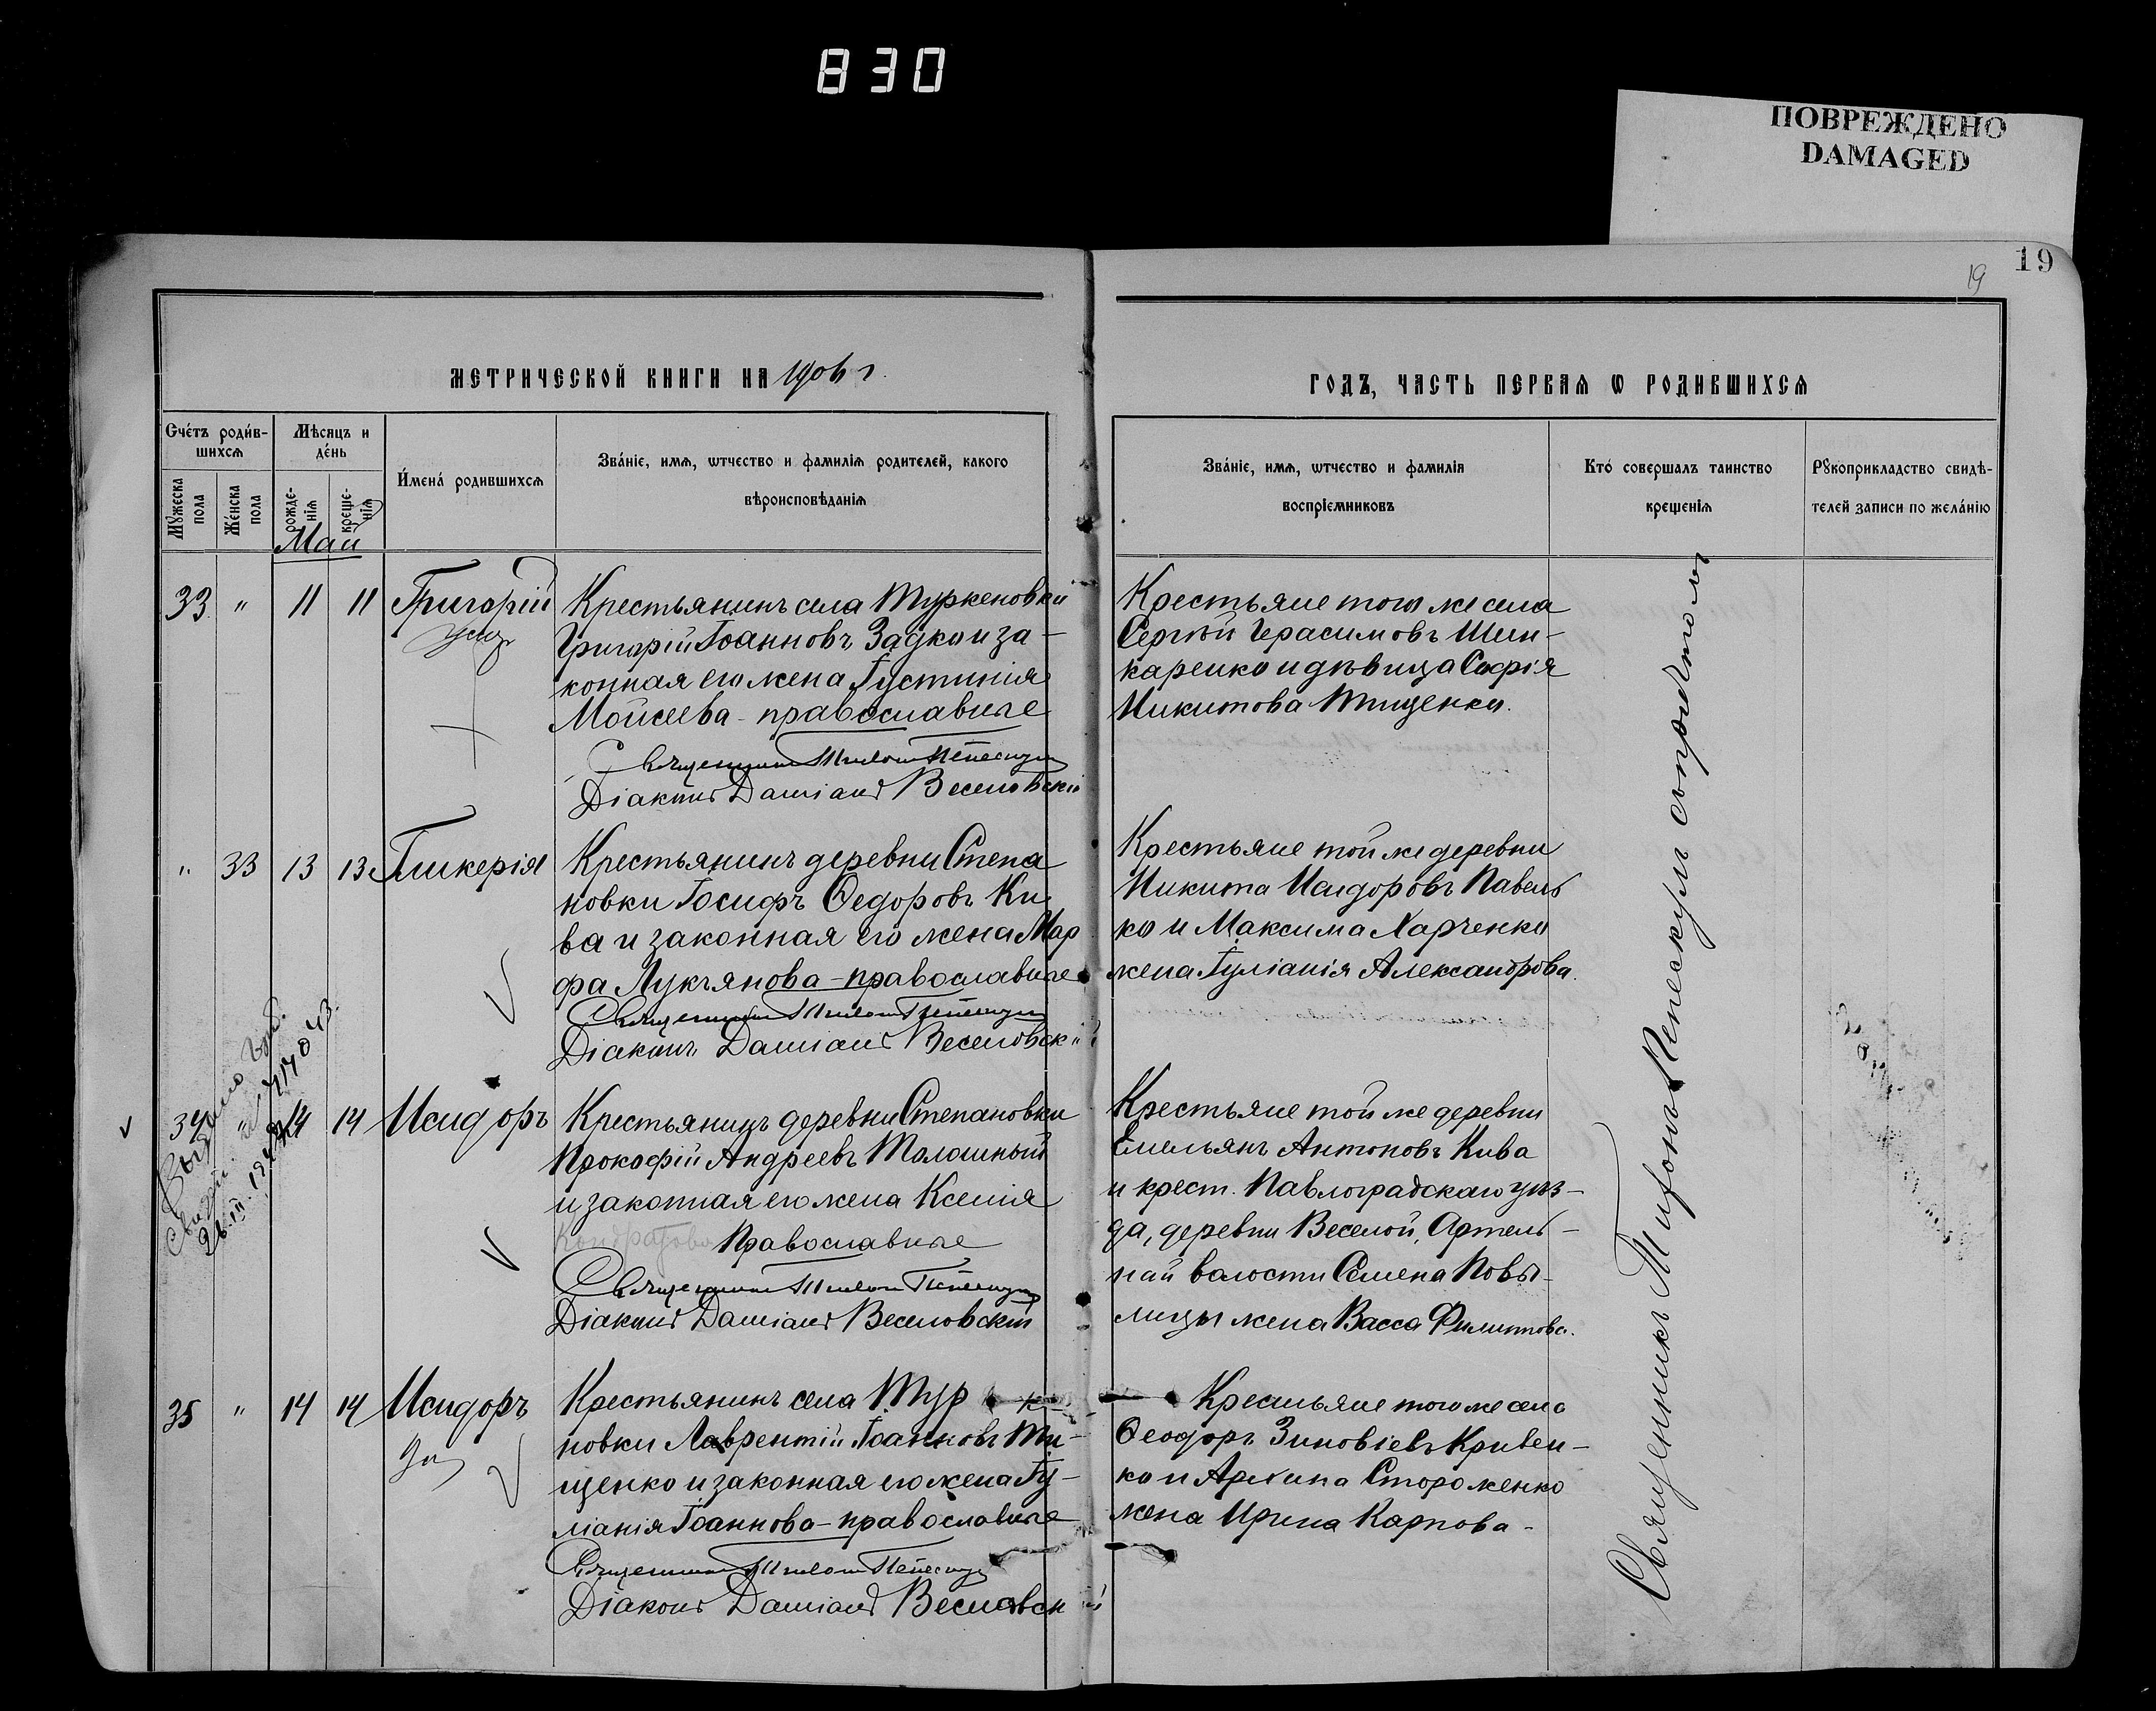 830
ПОВРЕЖДЕНО
DAMAGED
19
19
МЕТРИЧЕСКОЙ КНИГИ НА 1906 г.
ГОДЪ, ЧАСТЬ ПЕРВАЯ Ѡ РОДИВШИХСЯ
Счетъ родившихся
Мѣсяцъ и день
Имена родившихся
Званіе, имя, ѡтчество и фамилія родителей, какого вѣроисповѣданія
Званіе, имя, ѡтчество и фамилія воспріемниковъ
Кто совершалъ таинство крещенія
Рукоприкладство свидѣтелей записи по желанію
Мужеска пола
Женска пола
рожденія
крещенія
Май
33 " 11 11 Григорій
Крестьянинъ села Туркеновки
Григорій Іоанновъ Задко и за-
конная его жена Іустинія
Моисеева - православные
Священникъ
Діаконъ Даміанъ Веселовскій
Крестьяне того же села
Сергѣй Герасимовъ Шин-
каренко и дѣвица Софія
Никитова Тищенко.
" 33 13 13 Гликерія
Крестьянинъ деревни Степа
новки Іосифъ Ѳедоровъ Ки
ва и законная его жена Мар
фа Лукьянова - православные
Священникъ
Діаконъ Даміанъ Веселовскій
Крестьяне той же деревни
Никита Исидоровъ Павель
ко и Максима Харченко
жена Іуліанія Александрова.
34 " 14 14 Исидоръ
Крестьянинъ деревни Степановки
Прокофій Андреевъ
и законная его жена Ксенія
Кондратова Православные
Священникъ
Діаконъ Даміанъ Веселовскій
Крестьяне той же деревни
Емельянъ Антоновъ Кива
и крест. Павлоградскаго уѣз-
да, деревни Веселой, Артель-
ной волости Семена Повы-
лицы жена Васса Филиппова.
35 " 14 14 Исидоръ
Крестьянинъ села Тур
новки Лаврентій Іоанновъ Ти-
щенко и законная его жена Іу-
ліанія Іоаннова - православные
Священникъ
Діаконъ Даміанъ Веселовскій
Крестьяне того же села
Ѳеодоръ Зиновіевъ Кривен-
ко и Сторoженко
жена Ирина Карпова -
Священникъ Пепескулъ съ причтомъ